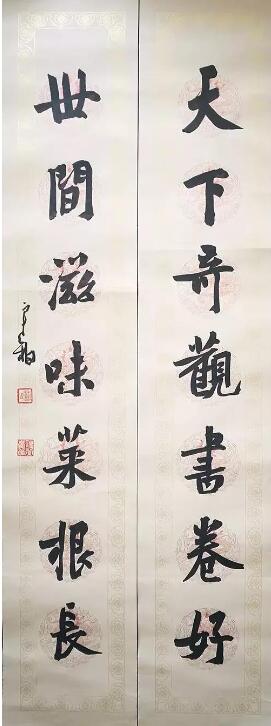 天下奇觀書卷好
世間滋味菜根長